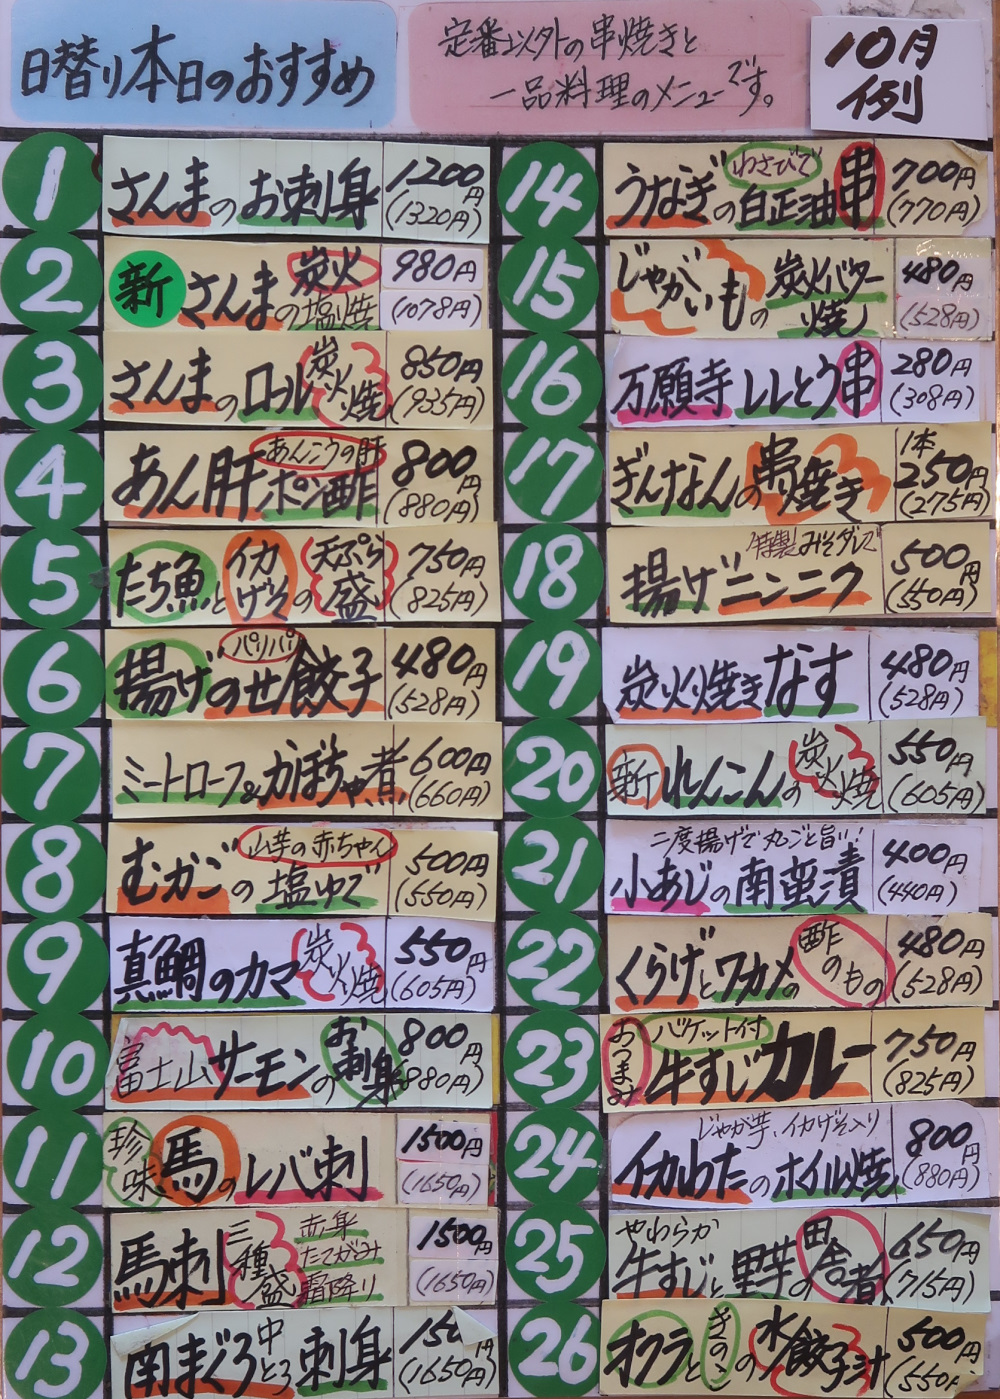 日替り本日のおすすめ
定番以外の串焼きと
一品料理のメニューです。
10月
例
1 さんまのお刺身 1200円 (1320円)
2 新 さんまの炭火塩焼 980円 (1078円)
3 さんまのロール炭火焼 850円 (935円)
4 あん肝ポン酢 あんこうの肝 800円 (880円)
5 たち魚とイカげその天ぷら盛 750円 (825円)
6 揚げのせ餃子 パリパリ 480円 (528円)
7 ミートローフ&かぼちゃ煮 600円 (660円)
8 むかごの塩ゆで 山芋の赤ちゃん 500円 (550円)
9 真鯛のカマ炭火焼 550円 (605円)
10 富士山サーモンのお刺身 800円 (880円)
11 珍味 馬のレバ刺 1500円 (1650円)
12 馬刺三種盛 赤身 たてがみ 霜降り 1500円 (1650円)
13 南まぐろ中とろ刺身 150 (1650円)
14 うなぎの白正油串 わさびで 700円 (770円)
15 じゃがいもの炭火バター焼 480円 (528円)
16 万願寺ししとう串 280円 (308円)
17 ぎんなんの串焼き 1本 250円 (275円)
18 特製みそダレで 揚げニンニク 500円 (550円)
19 炭火焼きなす 480円 (528円)
20 新 れんこんの炭火焼 550円 (605円)
21 二度揚げで丸ごと旨い! 小あじの南蛮漬 400円 (440円)
22 くらげとワカメの酢のもの 480円 (528円)
23 おつまみ バケット付 牛すじカレー 750円 (825円)
24 じゃが芋、イカげそ入り イカわたのホイル焼 800円 (880円)
25 やわらか 牛すじと里芋の田舎煮 650円 (715円)
26 オクラときのこの水餃子汁 500円 (550円)